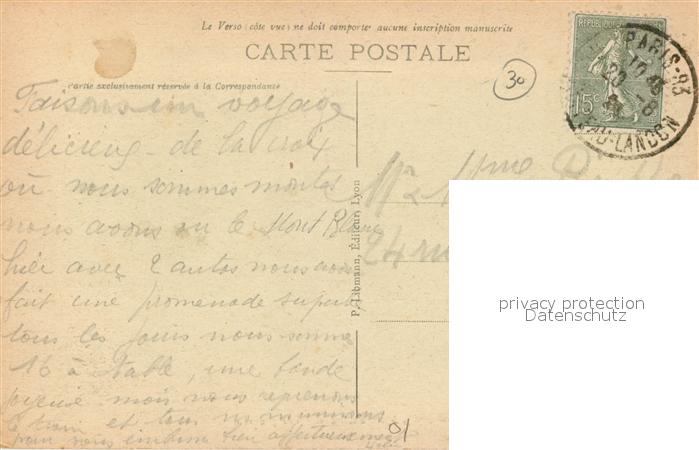 Le Verso (côte vue) ne doit comporter aucune inscription manuscrite
CARTE POSTALE
Partie exclusivement réservée à la Correspondance
REPUBLIQUE
15c
PARIS-83
30
Faisons un voyage
délicieux - de la croix
où nous sommes montés
nous avons vu le Mont Blanc
hier avec 2 autos nous avons
fait une promenade superbe
tous les jours nous sommes
16 à table, une bande
joyeuse mais nous reprenons
le train et tous nous
pour vous embrasser bien affectueusement
P. Libmann, Éditeur, Lyon
Mr & Mme
24 rue
01
privacy protection
Datenschutz